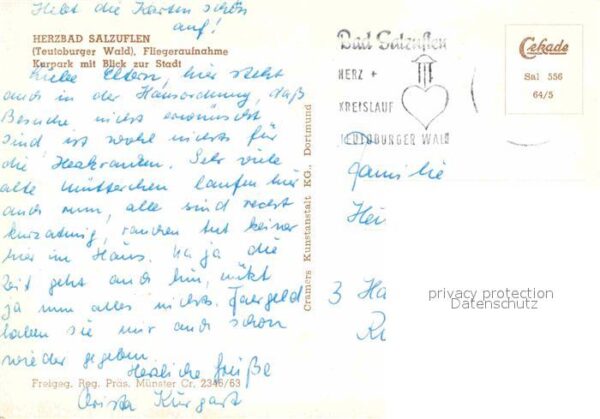 Hebt die Karten schön
auf!
HERZBAD SALZUFLEN
(Teutoburger Wald), Fliegeraufnahme
Kurpark mit Blick zur Stadt
Liebe Eltern, hier steht
auch in der Hausordnung, daß
Besuche nicht erwünscht
sind ist wohl nichts für
die Herzkranken. Sehr viele
alte Mütterchen laufen hier
auch rum, alle sind recht
kurzatmig, rauchen tut keiner
hier im Haus. Na ja die
Zeit geht auch hin, nützt
ja nun alles nichts. Fahrgeld
haben sie mir auch schon
wieder gegeben.
Herzliche Grüße
Christa
Freigeg. Reg. Präs. Münster Cr. 2346/63
Cramers Kunstanstalt KG., Dortmund
Bad Salzuflen
HERZ +
KREISLAUF
TEUTOBURGER WALD
Cekade
Sal 556
64/5
Familie
Hei
3 Ha
privacy protection
Datenschutz